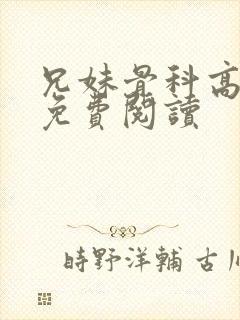 兄妹骨科高
免費閱讀
時野洋輔 古川